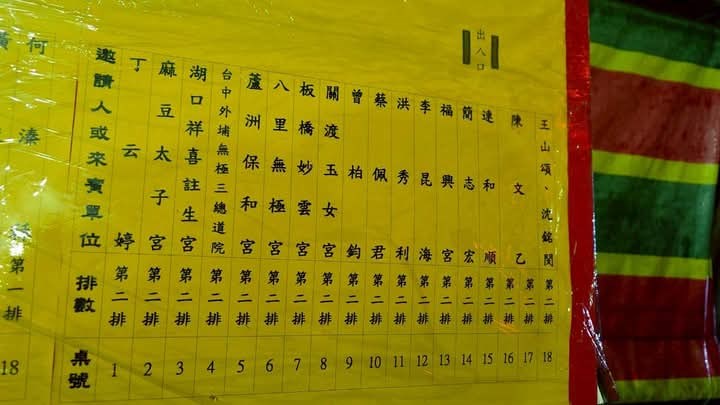 出入口
何 溱 第一排 18
邀請人或來賓單位 排數 桌號
丁云婷 第二排 1
麻豆太子宮 第二排 2
湖口祥喜註生宮 第二排 3
台中外埔無極三總道院 第二排 4
蘆洲保和宮 第二排 5
八里無極宮 第二排 6
板橋妙雲宮 第二排 7
關渡玉女宮 第二排 8
曾柏鈞 第二排 9
蔡佩君 第二排 10
洪秀利 第二排 11
李昆海 第二排 12
福興宮 第二排 13
簡志宏 第二排 14
連和順 第二排 15
陳文乙 第二排 16 第二排 17
王山頌、沈銘閔 第二排 18